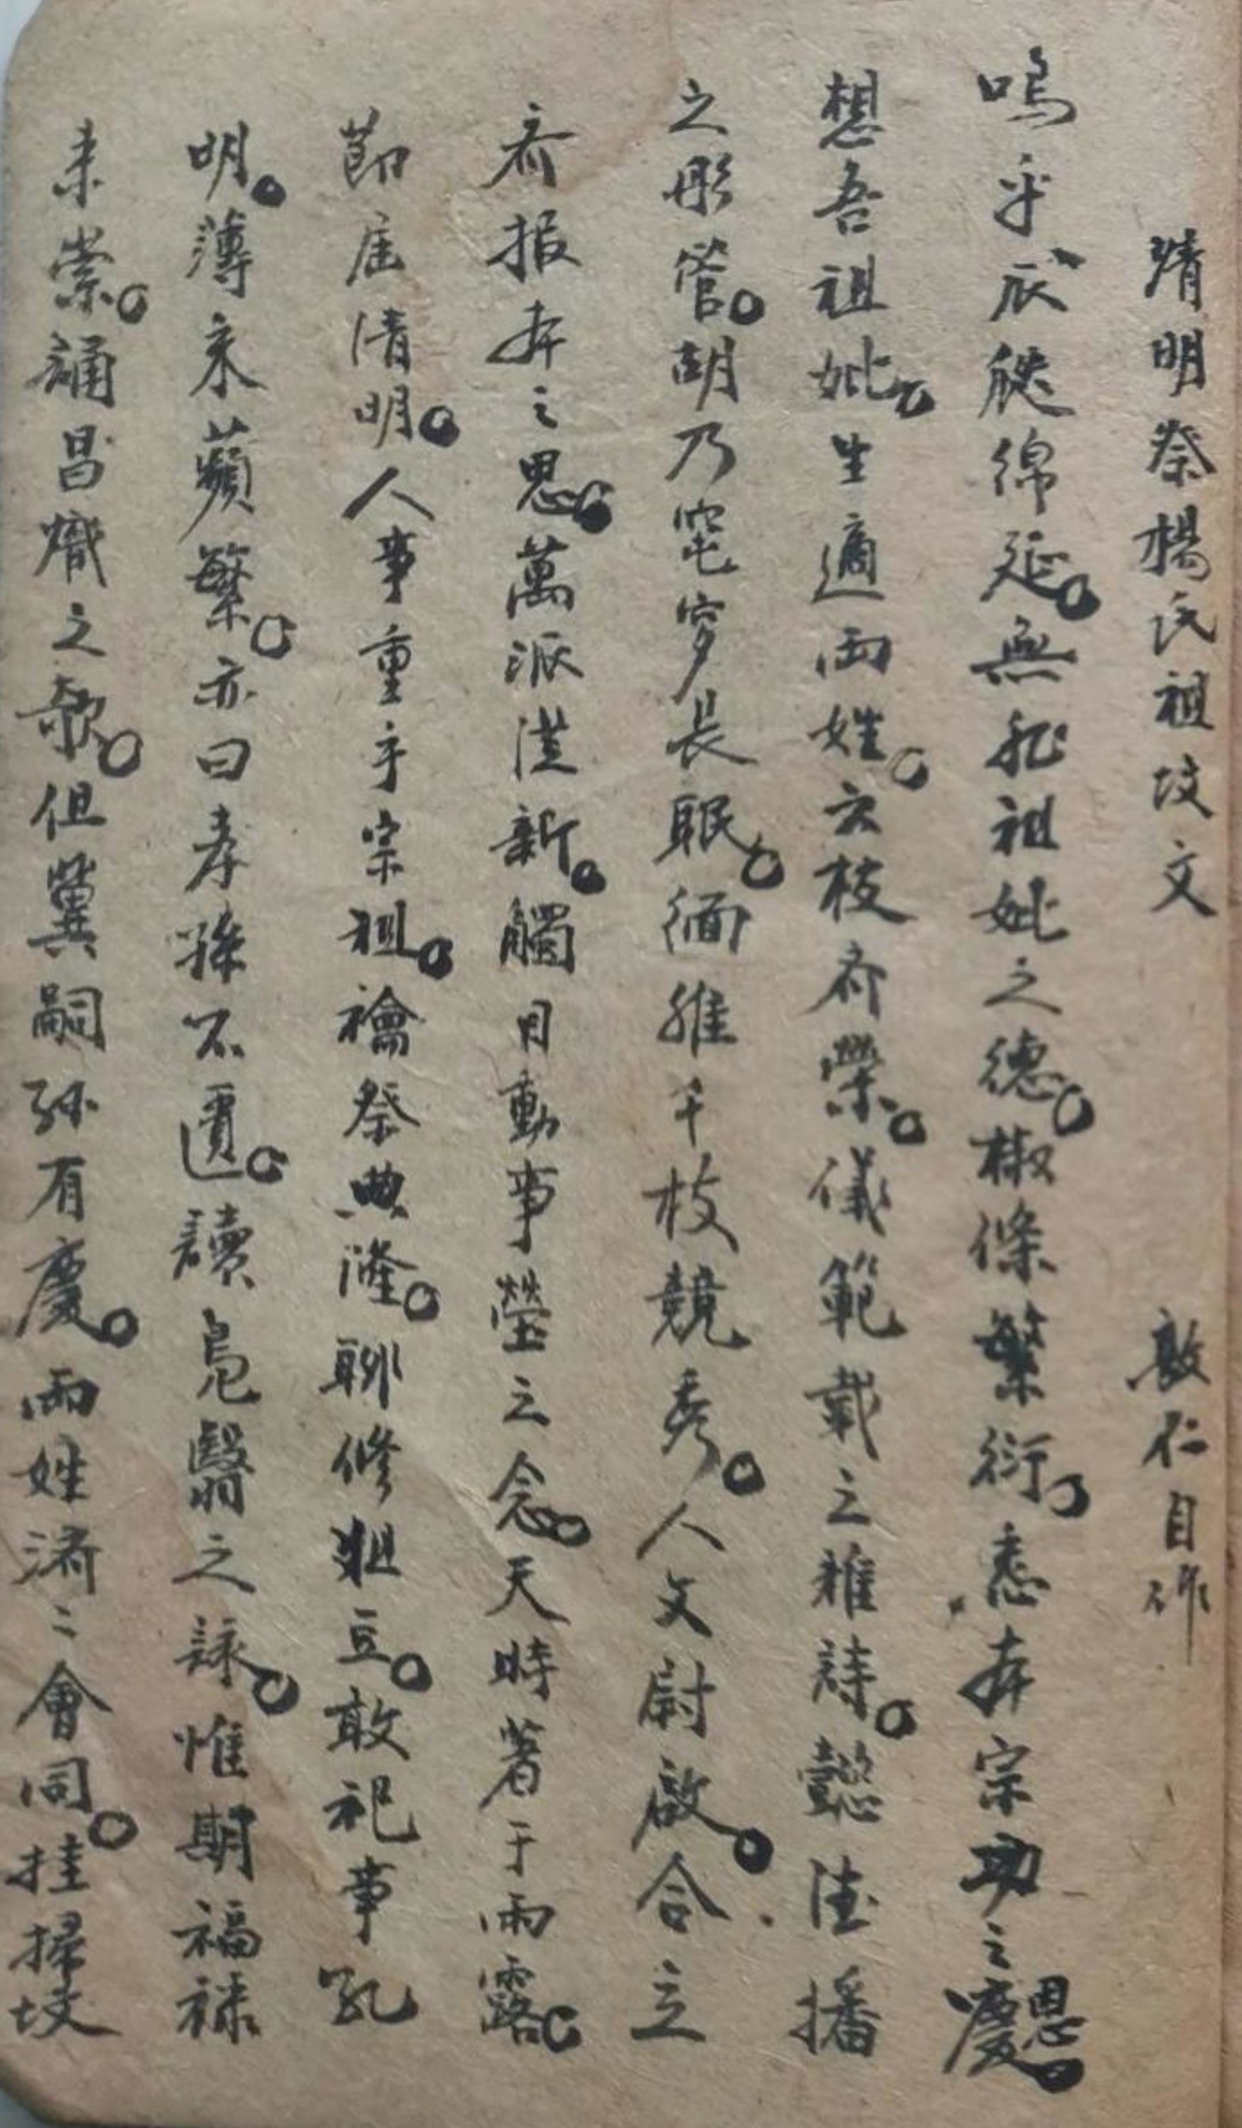 清明祭楊氏祖坟文 敦仁自作
嗚乎瓜瓞綿延無非祖妣之德椒條繁衍悉奔宗功之慶恩
想吾祖妣生適両姓玄枝斉榮儀範載之雅詩懿德播
之彤管胡乃窀穸長眠緬維千枝競秀人文尉啟合立
斉报奔之思萬派洪新觸目動事瑩之念天時著于雨露
節届清明人事重乎宗祖禴祭典隆聊修俎豆敢祀事孔
明薄采蘋繁亦曰孝孫不匱讀鳧鷖之詠惟期福禄
来崇誦昌熾之歌但冀嗣孙有慶両姓濟〻會同挂掃坟